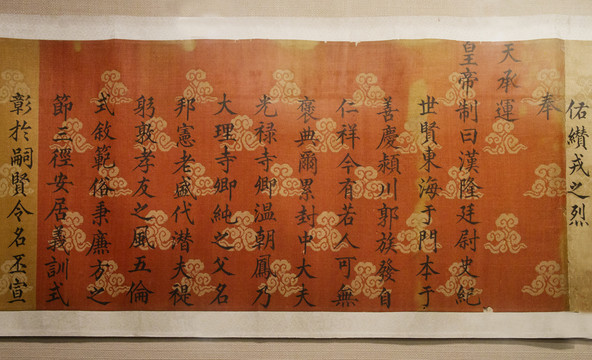 佑纘戎之烈
奉
天承運
皇帝制曰漢隆廷尉史紀
世賢東海于門本于
善慶潁川郭族發自
仁祥今有若人可無
褒典爾累封中大夫
光禄寺卿温朝鳳乃
大理寺卿純之父名
邦憲老盛代潜夫禔
躬敦孝友之風五倫
式敘範俗秉廉方之
節三徑安居義訓式
彰於嗣賢令名丕宣